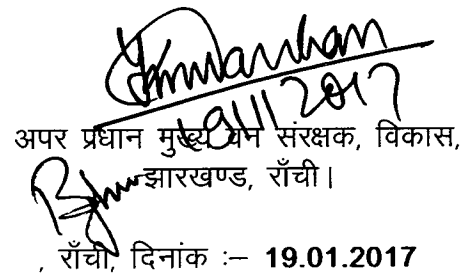 19/1/2017
अपर प्रधान मुख्य वन संरक्षक, विकास,
झारखण्ड, राँची।
, राँची, दिनांक :– 19.01.2017